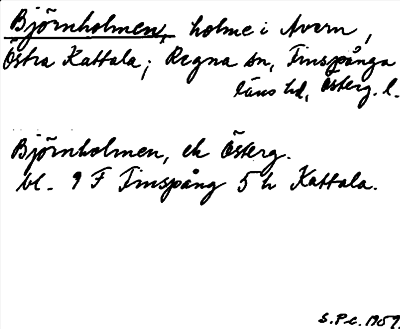 Björnholmen, holme i Avern,
Östra Kattala; Regna sn, Finspånga
läns hd, Österg. l.
Björnholmen, ek Österg.
bl. 9 F Finspång 5 h Kattala.
S.P-e. 1959.